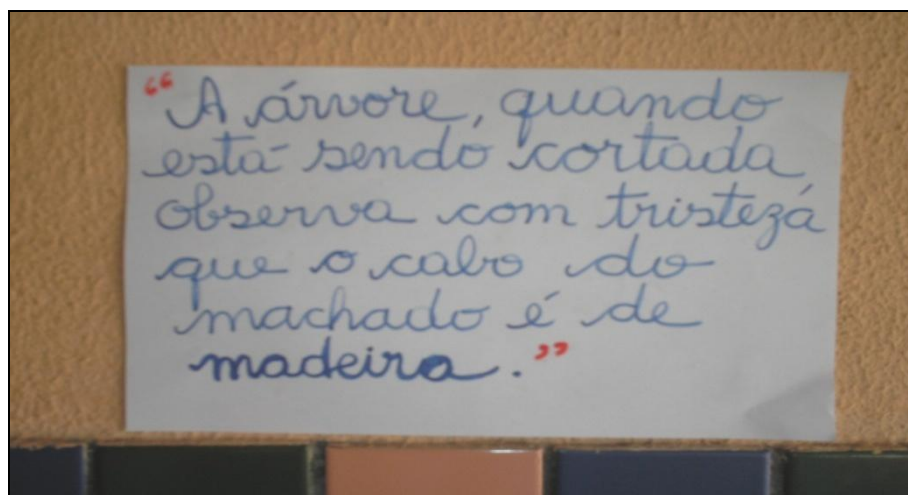 “A árvore, quando
está sendo cortada
observa com tristeza
que o cabo do
machado é de
madeira.”